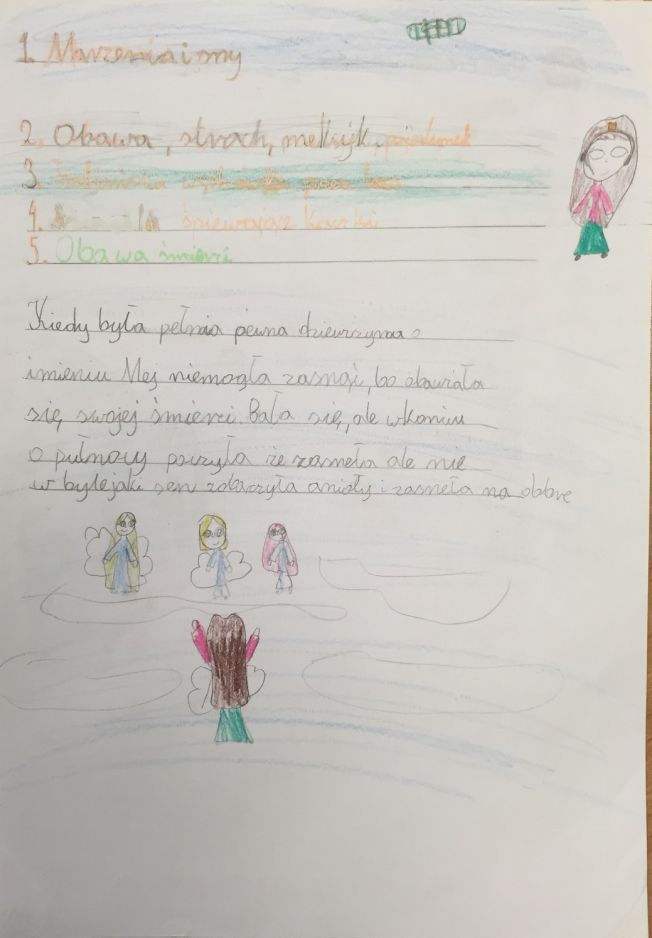 1. Marzenia i my
2. Obawa, strach, meksyk, pojedynek
3. wędrówka przez las
4. śpiewające kaczki
5. Obawa śmierci
Kiedy była pełnia pewna dziewczyna o
imieniu Mej niemogła zasnąć, bo obawiała
się swojej śmierci. Bała się, ale wkońcu
o pułnocy poczyła że zasneła ale nie
w bylejaki sen zobaczyła anioły i zasneła na dobre